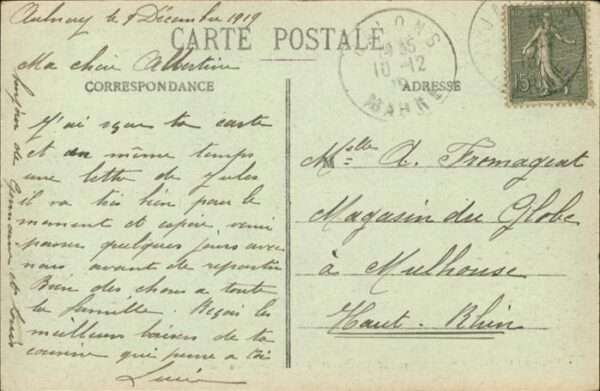 Aulnay le 9 Décembre 1919
CARTE POSTALE
CORRESPONDANCE
ADRESSE
Ma chère Albertine
J'ai reçue ta carte
et en même temps
une lettre de Jules
il va très bien pour le
moment et espère venir
passer quelques jours avec
nous avant de repartir
Bien des choses a toute
la famille. Reçois les
meilleurs baisers de ta
cousine qui pense a toi
Lucie
de Germaine et Louis
Melle A. Fromageat
Magasin du Globe
à Mulhouse
Haut-Rhin
CHALONS
10-12
MARNE
15c